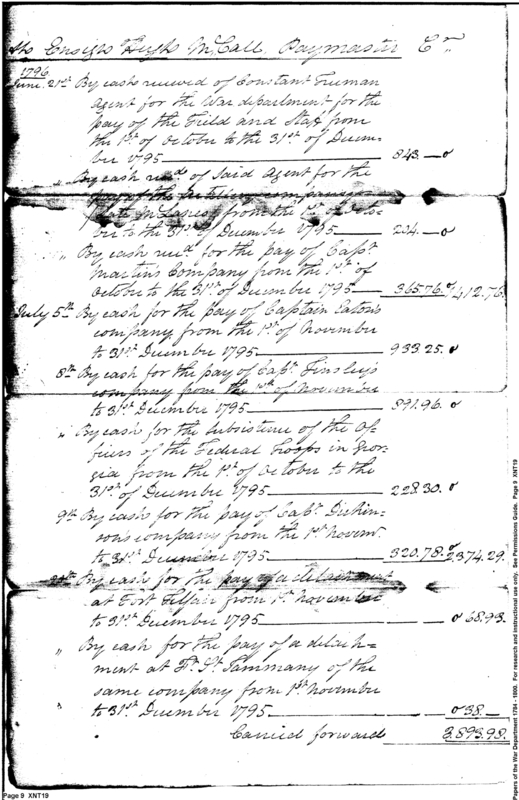 Ensign Hugh McCall, Paymaster Cr.
1796
June. 21st By cash received of Constant Freeman
Agent for the War department for the
pay of the Field and Staff from
the 1st. of October to the 31st. of Decem-
ber 1795 843.—o
„ By cash recd. of Said Agent for the
pay of the Artillery company
from the 1st. of Octo-
ber to the 31st of December 1795 204.—o
„ By cash recd. for the pay of Capt.
Martin's Company from the 1st. of
October to the 31st of December 1795 365.76. o 1,412.76.
July 5th. By cash for the pay of Captain Eatons
company from the 1st. of November
to 31st December 1795 933.25. o
8th. By cash for the pay of Capt. Tinsley's
company from the 1st of November
to 31st December 1795 891.96. o
„ By cash for the subsistence of the Of-
ficers of the Federal troops in Geor-
gia from the 1st of October to the
31st of December 1795 228.30. o
9th By cash for the pay of Capt. Dickin-
son's company from the 1st. Novemr.
to 31st December 1795 320.78. o 2,374.29.
By cash for the pay of a detachment
at Fort Telfair from 1st November
to 31st December 1795 o 68.93.
„ By cash for the pay of a detach-
ment at Ft. St. Tammany of the
same company from 1st November
to 31st December 1795 o 38.—
Carried forward 3,893.98.
Page 9 XNT19
Papers of the War Department 1784 - 1800. For research and instructional use only. See Permissions Guide. Page 9 XNT19